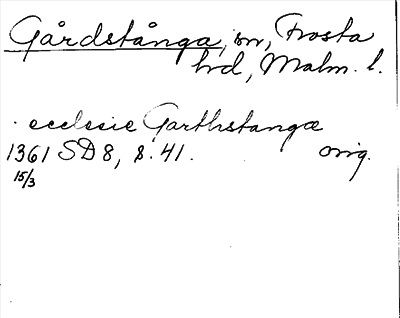 Gårdstånga, sn, Frosta
hd, Malm. l.
ecclesie Garthstanga
1361 SD 8, s. 41. orig.
15/3